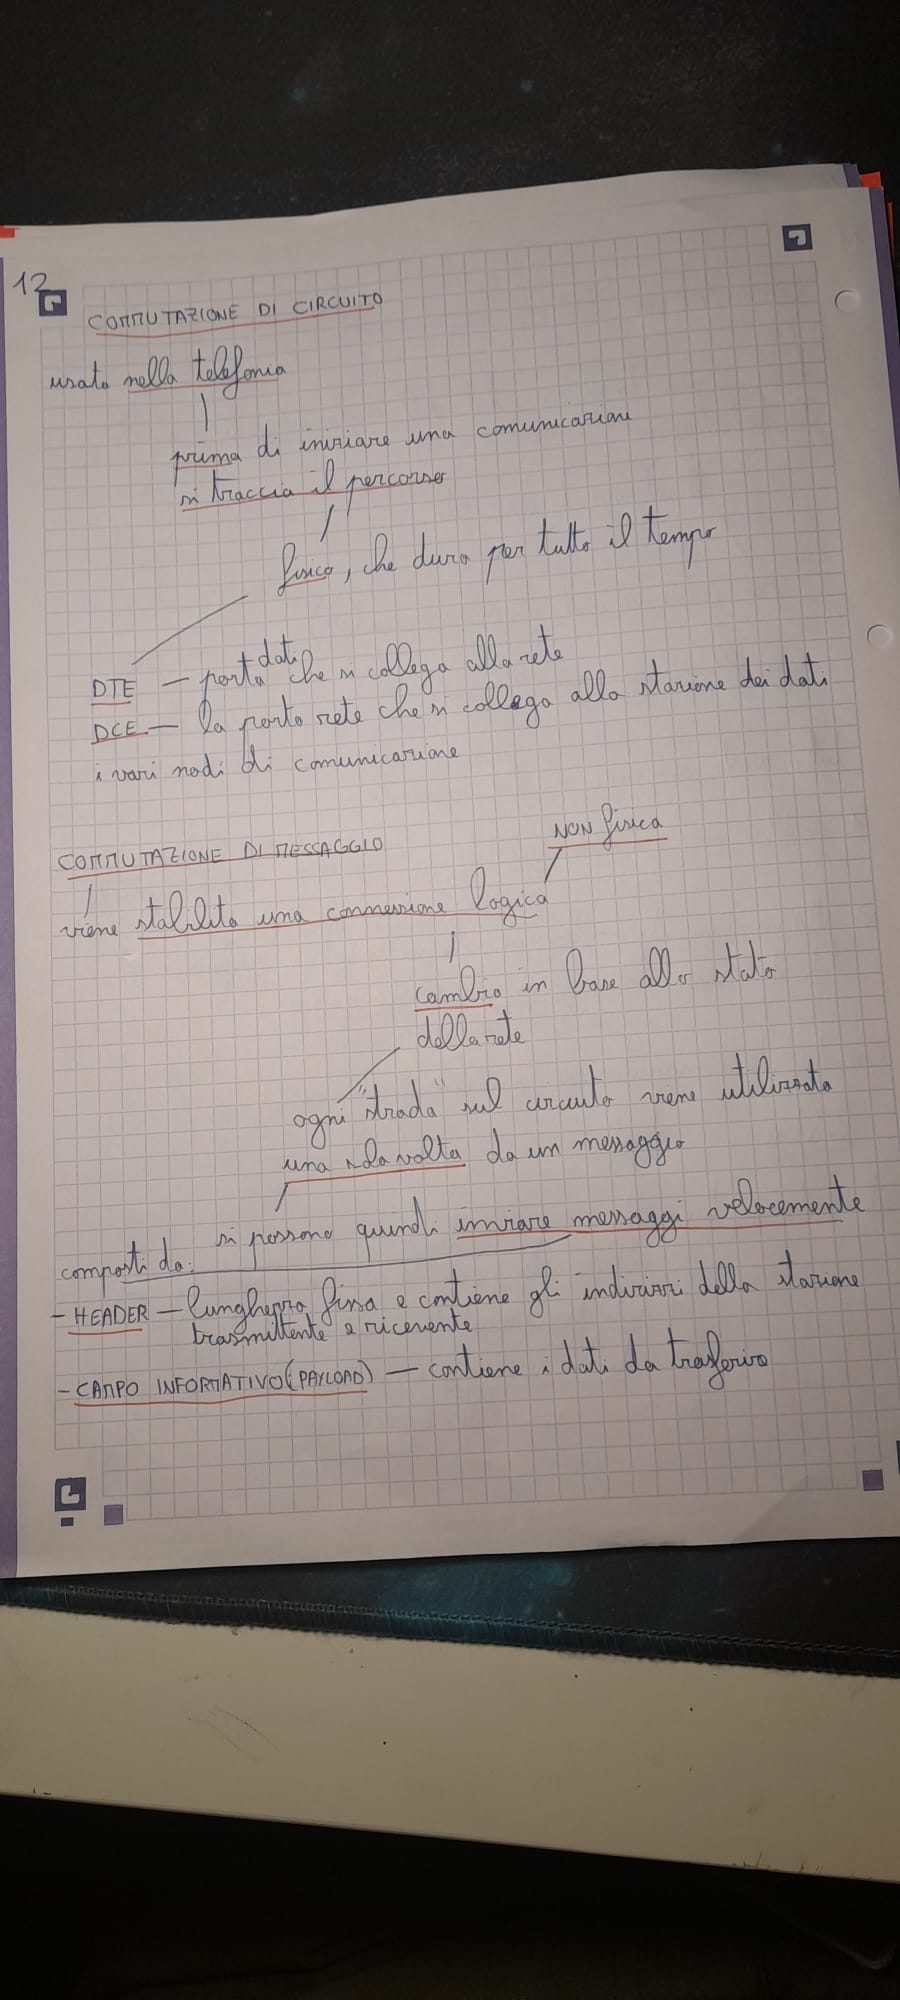 12
COMMUTAZIONE DI CIRCUITO
usata nella telefonia
prima di iniziare una comunicazione
si traccia il percorso
fisico, che dura per tutto il tempo
DTE — porta dati che si collega alla rete
DCE — la porta rete che si collega alla stazione dei dati
i vari nodi di comunicazione
NON fisica
COMMUTAZIONE DI MESSAGGIO
viene stabilita una connessione logica
cambia in base allo stato
della rete
ogni "strada" sul circuito viene utilizzata
una sola volta da un messaggio
si possono quindi inviare messaggi velocemente
composti da:
- HEADER — lunghezza fissa e contiene gli indirizzi della stazione
trasmittente e ricevente
- CAMPO INFORMATIVO (PAYLOAD) — contiene i dati da trasferire